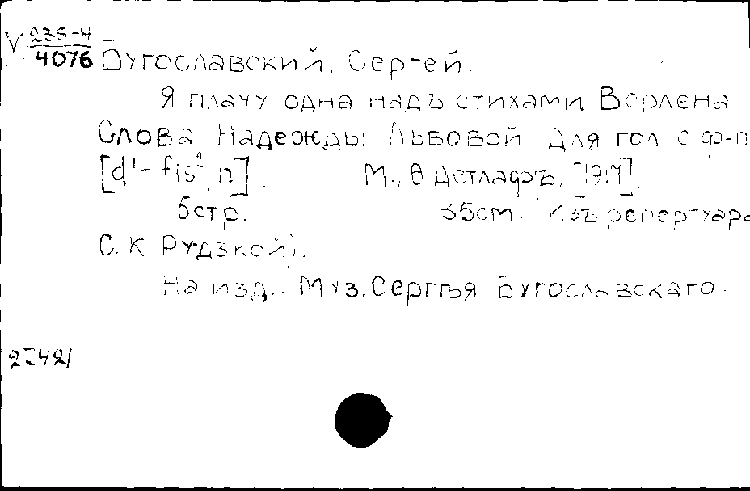 V 235-4
4076
Бугославский, Сергей.
Я плачу одна надъ стихами Верлена
Слова Надежды Львовой Для гол с ф-п
[d'- fis², n]. М., Детлафъ, [191
5стр. 35см. Изъ репертуара
С. К Рудзкой).
На изд.: Муз. Сергѣя Бугославскаго.